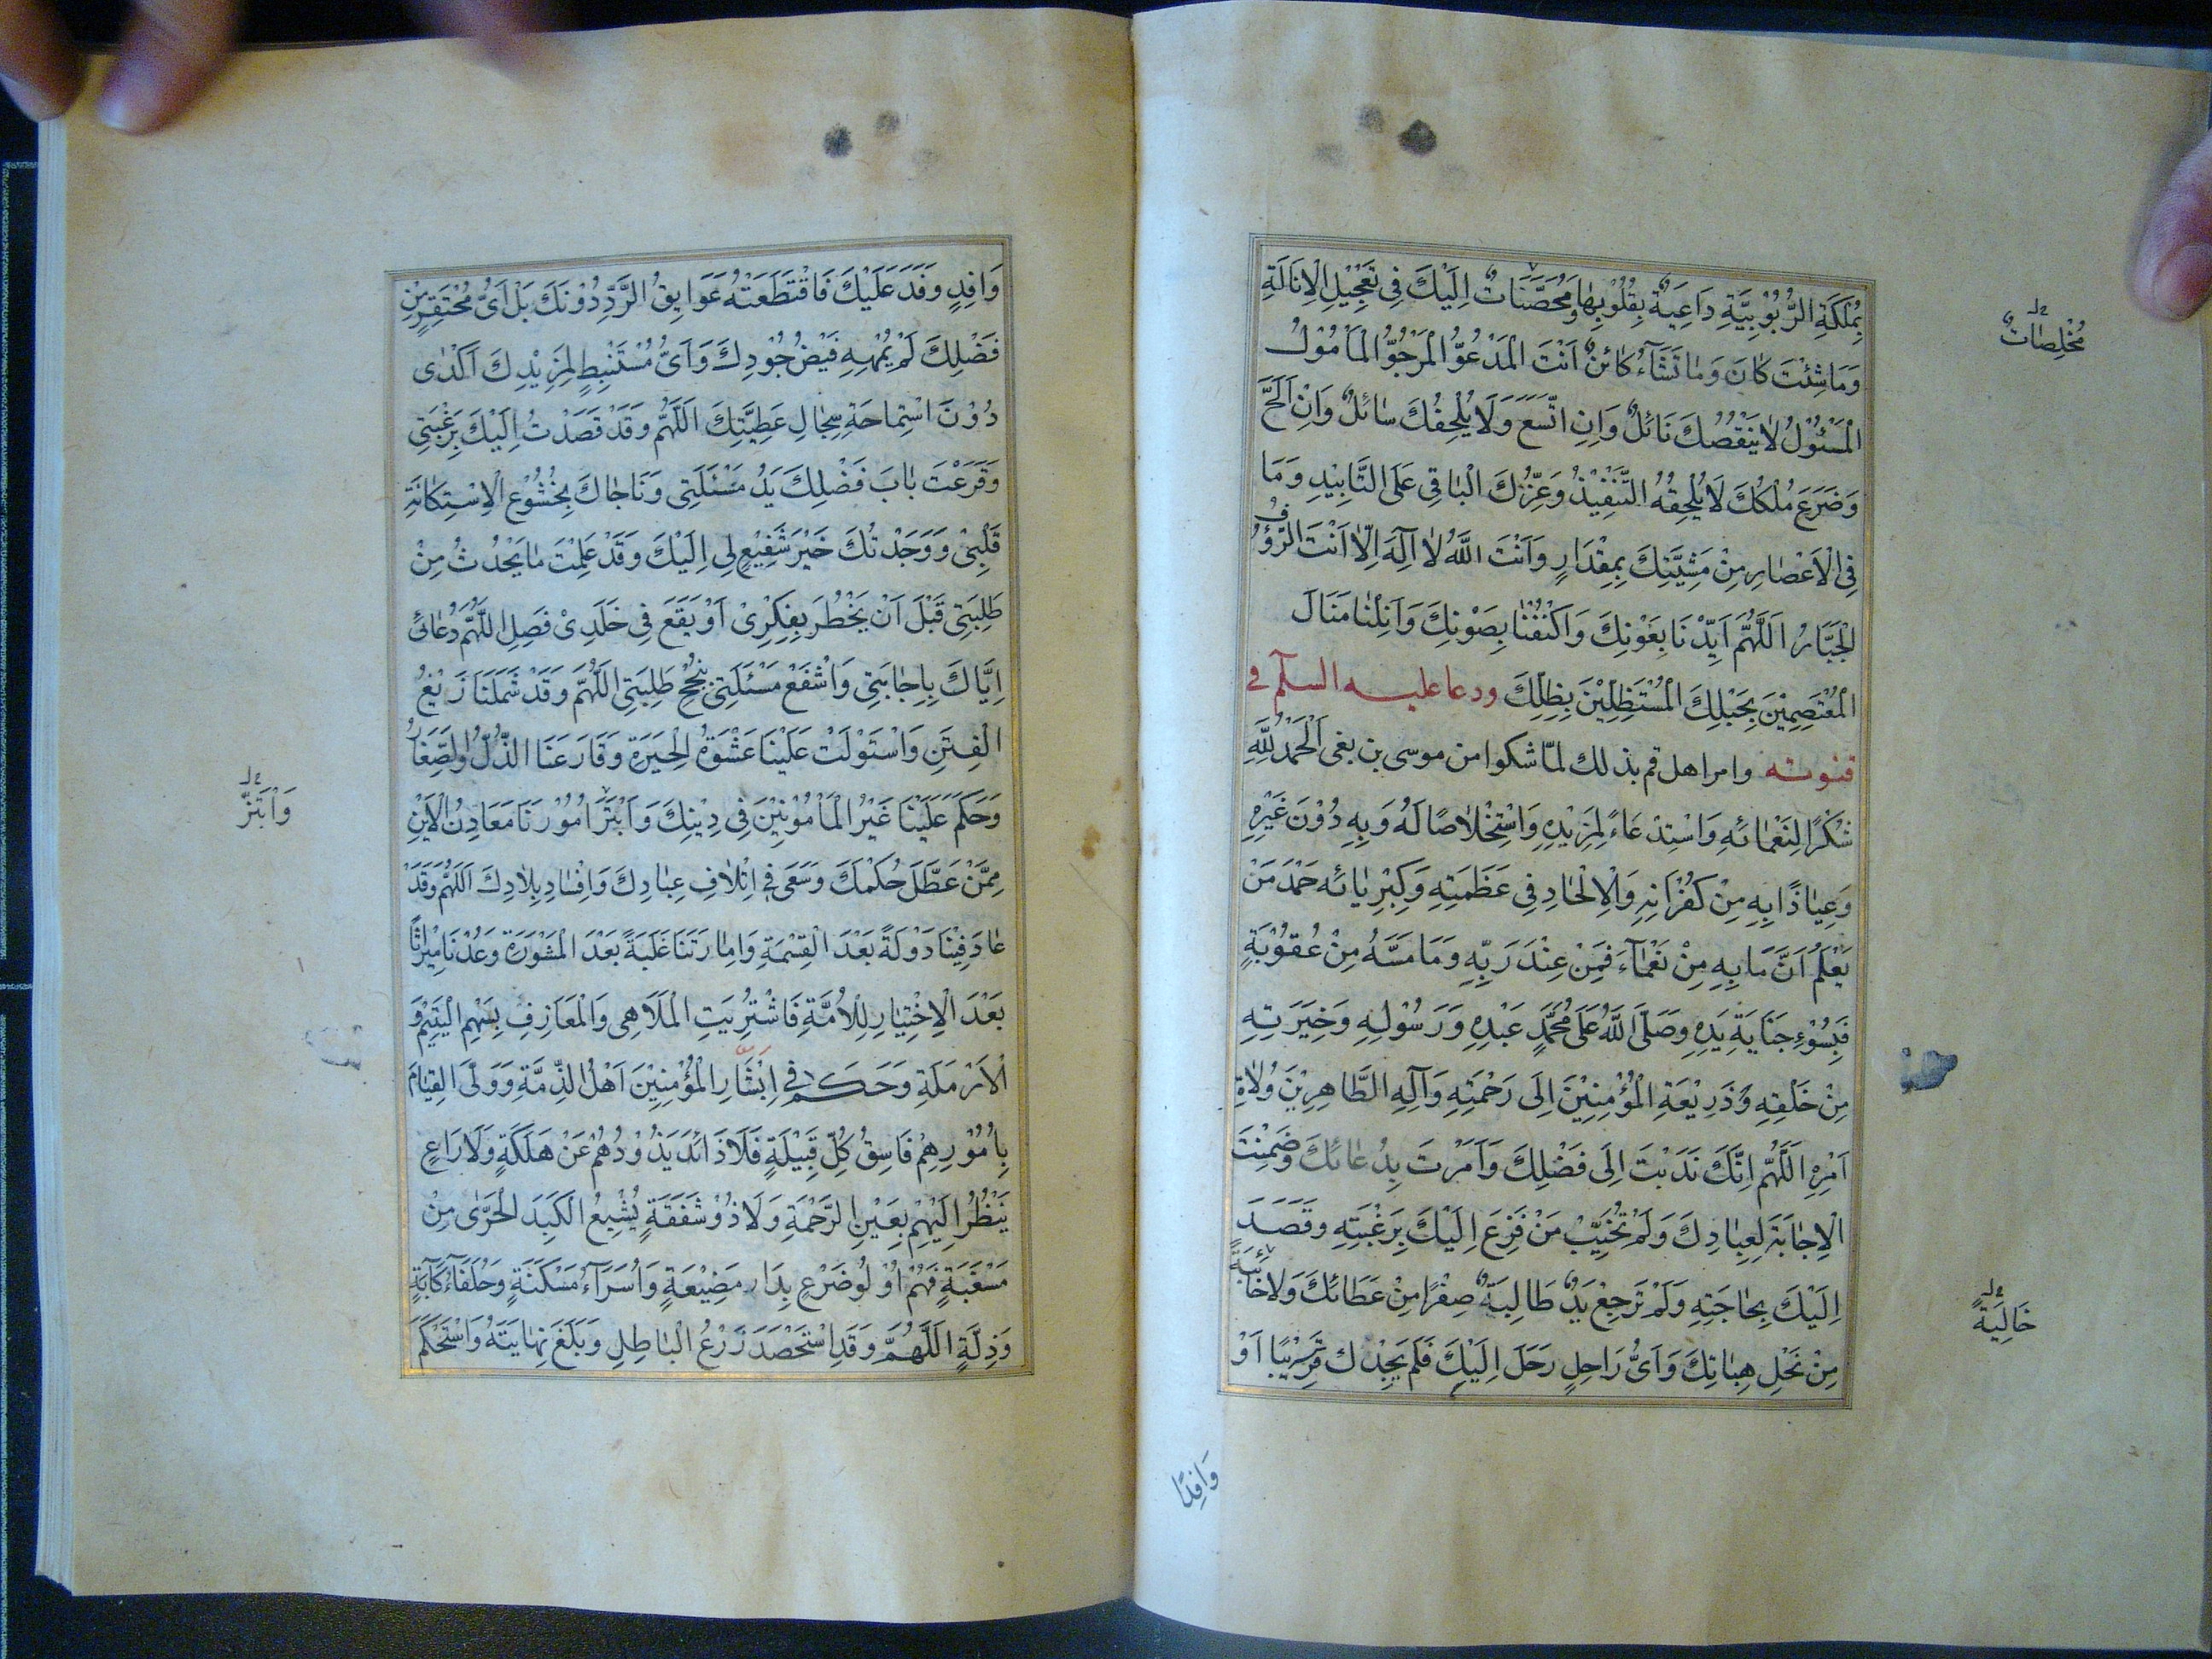 بِمُلْكَةِ الرُّبُوْبِيَّةِ دَاعِيَةٌ بِقُلُوْبِهَا وَمُحَصَّنَاتٌ اِلَيْكَ فِى تَعْجِيْلِ الْاِنَالَةِ
وَمَا شِئْتَ كَانَ وَمَا تَشَآءُ كَائِنٌ اَنْتَ الْمَدْعُوُّ الْمَرْجُوُّ الْمَأْمُوْلُ
الْمَسْئُوْلُ لَا يَنْقُصُكَ نَائِلٌ وَاِنِ اتَّسَعَ وَلَا يُلْحِفُكَ سَائِلٌ وَاِنْ اَلَحَّ
وَضَرَعَ مُلْكُكَ لَا يُلْحِقُهُ التَّنْفِيْذُ وَعِزُّكَ الْبَاقِى عَلَى التَّابِيْدِ وَمَا
فِى الْاَعْصَارِ مِنْ مَشِيَّتِكَ بِمِقْدَارٍ وَاَنْتَ اللّٰهُ لَا آلِهَ اِلَّا اَنْتَ الرَّؤُفُ
الْجَبَّارُ اَللّٰهُمَّ اَيِّدْنَا بِعَوْنِكَ وَاكْنُفْنَا بِصَوْنِكَ وَاَنِلْنَا مَنَالَ
الْمُعْتَصِمِيْنَ بِحَبْلِكَ الْمُسْتَظِلِّيْنَ بِظِلِّكَ ودعا عليه السلم فى
قنوته وامر اهل قم بذلك لمّا شكوا من موسى بن بغى اَلْحَمْدُ لِلّٰهِ
شُكْرًا لِنَعْمَائِهِ وَاسْتِدْعَاءً لِمَزِيْدِهِ وَاسْتِخْلَاصًا لَهُ وَبِهِ دُوْنَ غَيْرِهِ
وَعِيَاذًا بِهِ مِنْ كُفْرَانِهِ وَالْاِلْحَادِ فِى عَظَمَتِهِ وَكِبْرِيَائِهِ حَمْدَ مَنْ
يَعْلَمُ اَنَّ مَا بِهِ مِنْ نَعْمَآءَ فَمِنْ عِنْدَ رَبِّهِ وَمَا مَسَّهُ مِنْ عُقُوْبَةٍ
فَبِسُوْءِ جِنَايَةِ يَدِهِ وَصَلَّى اللّٰهُ عَلَى مُحَمَّدٍ عَبْدِهِ وَرَسُوْلِهِ وَخِيَرَتِهِ
مِنْ خَلْقِهِ وَذَرِيْعَةِ الْمُؤْمِنِيْنَ اِلَى رَحْمَتِهِ وَآلِهِ الطَّاهِرِيْنَ وُلَاةِ
اَمْرِهِ اَللّٰهُمَّ اِنَّكَ نَدَبْتَ اِلَى فَضْلِكَ وَاَمَرْتَ بِدُعَائِكَ وَضَمِنْتَ
الْاِجَابَةَ لِعِبَادِكَ وَلَمْ تُخَيِّبْ مَنْ فَزِعَ اِلَيْكَ بِرَغْبَتِهِ وَقَصَدَ
اِلَيْكَ بِحَاجَتِهِ وَلَمْ تَرْجِعْ يَدٌ طَالِبَةٌ صِفْرًا مِنْ عَطَائِكَ وَلَا خَائِبَةً
مِنْ نَحْلِ هِبَاتِكَ وَاَىُّ رَاحِلٍ رَحَلَ اِلَيْكَ فَلَمْ يَجِدْكَ قَرِيْبًا اَوْ
مُخْلِصَاتٌ
خَالِيَةً
وَافِدًا
وَافِدٍ وَفَدَ عَلَيْكَ فَاقْتَطَعَتْهُ عَوَايِقُ الرَّدِّ دُوْنَكَ بَلْ اَىُّ مُحْتَقِرٍ مِنْ
فَضْلِكَ لَمْ يُمْهِهِ فَيْضُ جُوْدِكَ وَاَىُّ مُسْتَنْبِطٍ لِمَزِيْدِكَ اَكْدٰى
دُوْنَ اسْتِمَاحَةِ سِجَالِ عَطِيَّتِكَ اَللّٰهُمَّ وَقَدْ قَصَدْتُ اِلَيْكَ بِرَغْبَتِى
وَقَرَعْتَ بَابَ فَضْلِكَ يَدُ مَسْئَلَتِى وَنَاجَاكَ بِخُشُوْعِ الْاِسْتِكَانَةِ
قَلْبِىْ وَوَجَدْتُكَ خَيْرَ شَفِيْعٍ لِى اِلَيْكَ وَقَدْ عَلِمْتَ مَا يَحْدُثُ مِنْ
طَلِبَتِى قَبْلَ اَنْ يَخْطُرَ بِفِكْرِىْ اَوْ يَقَعَ فِى خَلَدِىْ فَصِلِ اللّٰهُمَّ دُعَائِىْ
اِيَّاكَ بِاِجَابَتِىْ وَاشْفَعْ مَسْئَلَتِىْ بِنُجْحِ طَلِبَتِى اَللّٰهُمَّ وَقَدْ شَمَلَنَا زَيْغُ
الْفِتَنِ وَاسْتَوْلَتْ عَلَيْنَا عَشْوَةُ الْحِيَرَةِ وَقَارَعَنَا الذُّلُّ وَالصَّغَارُ
وَحَكَمَ عَلَيْنَا غَيْرُ الْمَأْمُوْنِيْنَ فِى دِيْنِكَ وَابْتَزَّ اُمُوْرَنَا مَعَادِنُ الْاَبْنِ
مِمَّنْ عَطَّلَ حُكْمَكَ وَسَعَى فِى اِتْلَافِ عِبَادِكَ وَاِفْسَادِ بِلَادِكَ اَللّٰهُمَّ وَقَدْ
عَادَ فِيْنَا دَوْلَةً بَعْدَ الْقِسْمَةِ وَاِمَارَتَنَا غَلَبَةً بَعْدَ الْمَشْوَرَةِ وَعُدْنَا مِيْرَاثًا
بَعْدَ الْاِخْتِيَارِ لِلْاُمَّةِ فَاشْتُرِيَتِ الْمَلَاهِى وَالْمَعَازِفِ بِسَهْمِ الْيَتِيْمِ وَ
الْاَرْمَلَةِ وَحَكَمَ فِى اِبْشَارِ الْمُؤْمِنِيْنَ اَهْلُ الذِّمَّةِ وَوَلَّى الْقِيَامَ
بِاُمُوْرِهِمْ فَاسِقُ كُلِّ قَبِيْلَةٍ فَلَا ذَائِدَ يَذُوْدُهُمْ عَنْ هَلَكَةٍ وَلَا رَاعٍ
يَنْظُرُ اِلَيْهِمْ بِعَيْنِ الرَّحْمَةِ وَلَا ذُوْ شَفَقَةٍ يُشْبِعُ الْكَبِدَ الْحَرّٰى مِنْ
مَسْغَبَةٍ فَهُمْ اُوْلُو ضَرْعٍ بِدَارِ مَضِيْعَةٍ وَاُسَرَآءُ مَسْكَنَةٍ وَحُلَفَآءُ كَآبَةٍ
وَذِلَّةٍ اَللّٰهُمَّ وَقَدِ اسْتَحْصَدَ زَرْعُ الْبَاطِلِ وَبَلَغَ نِهَايَتَهُ وَاسْتَحْكَمَ
وَابْتَزَّ